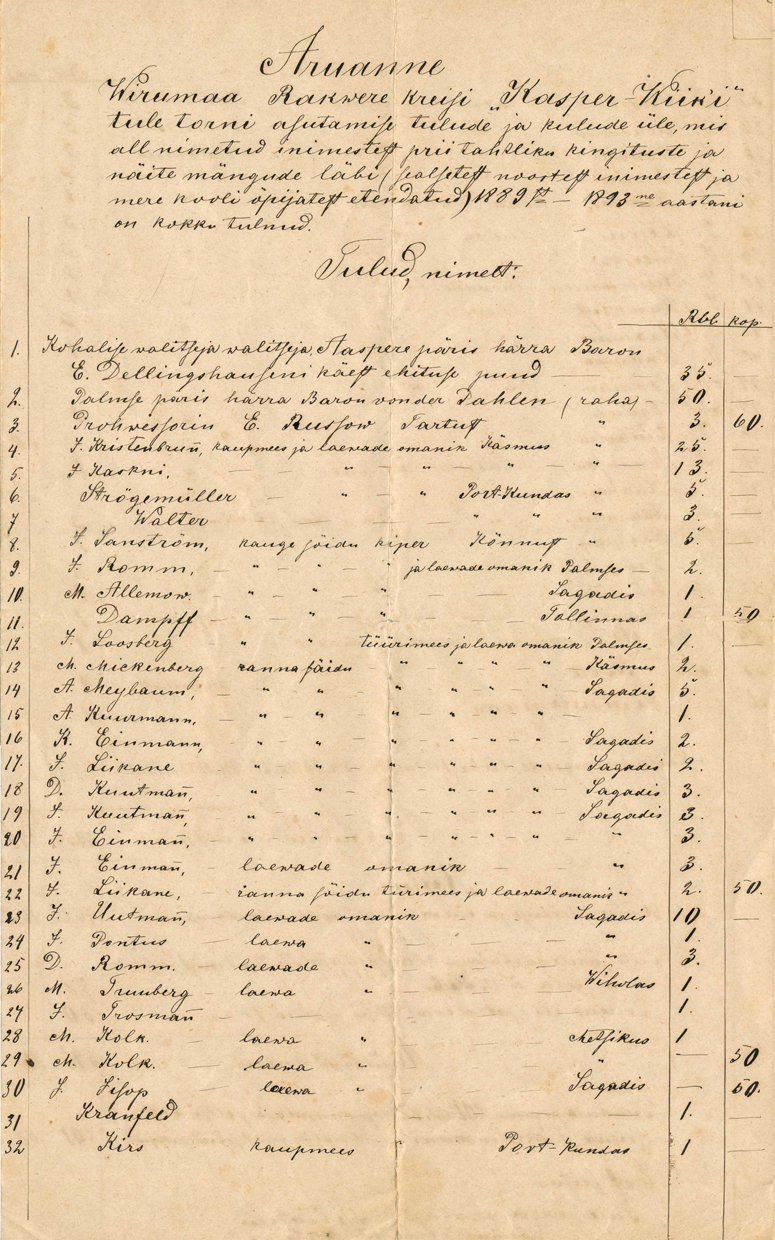 Aruanne
Wirumaa Rakwere kreisi „Kasper-Wiiki“
tule torni asutamise tulude ja kulude üle, mis
all nimetud inimestest prii tahtliku kingituste ja
näite mängude läbi (sealsetest noortest inimestest ja
mere kooli õpijatest etendatud) 1889st — 1893ne aastani
on kokku tulnud.
Tulud, nimelt:
Rbl. kop.
1. Kohalise walitseja walitseja, Aaspere päris härra Baron
E. Dellingshauseni käest ehituse puud — 35. —
2. Palmse päris härra Baron von der Pahlen (raha) — 50. —
3 Prohwessorin E. Russow Tartust " 3. 60.
4. J. Kristenbrun̄, kaupmees ja laewade omanik Käsmus " 25. —
5. J Kaskni, — " — " — " — " 13. —
6. Strögemüller — " — " Port-Kundas " 5. —
7 Walter — — — " " " 3. —
8. J. Sanström, kauge sõidu kiper Könnust " 5. —
9. J. Romm, — " — " — " ja laewade omanik Palmses — 2. —
10. M. Allemow. — " — " — " — Sagadis 1. —
11. Dampff — " — " — " — Tallinnas 1 50
12 J. Loosberg " " tüürimees ja laewa omanik Palmses 1. —
13 M. Mickenberg ranna sõidu — " — " — " — " Käsmus 2. —
14 A. Meybaum, — " — " — " — " — " — " Sagadis 5. —
15 A Kuurmann, — " — " — " — " — " — " — 1. —
16 K. Einmann, " " " " " " Sagadis 2. —
17. J. Liikane — " — " — " — " — " — " Sagadis 2. —
18 D. Kuutman̄, — " — " — " — " — " — " Sagadis 3. —
19 J. Kuutman̄, — " — " — " — " — " — " Sagadis 3. —
20 J. Einman̄, — " — " — " — " — " — " " 3. —
21 J. Einman̄, laewade omanik — " 3. —
22 J. Liikane, — ranna sõidu türimees ja laewade omanis " 2. 50.
23 J. Uutman̄, — laewade omanik — Sagadis 10 —
24 J. Pontus laewa " — " 1. —
25 D. Romm. — laewade " — " 3. —
26 M. Truuberg — laewa " — Wiholas 1. —
27 J. Trosman̄ — — — 1. —
28 M. Kolk. — laewa " — Metsikus 1 —
29 M. Kolk. — laewa " — " — 50
30 J. Jisop laewa " — Sagadis — 50.
31 Kranfeld — — — 1. —
32 Kirs kaupmees — Port-Kundas 1 —